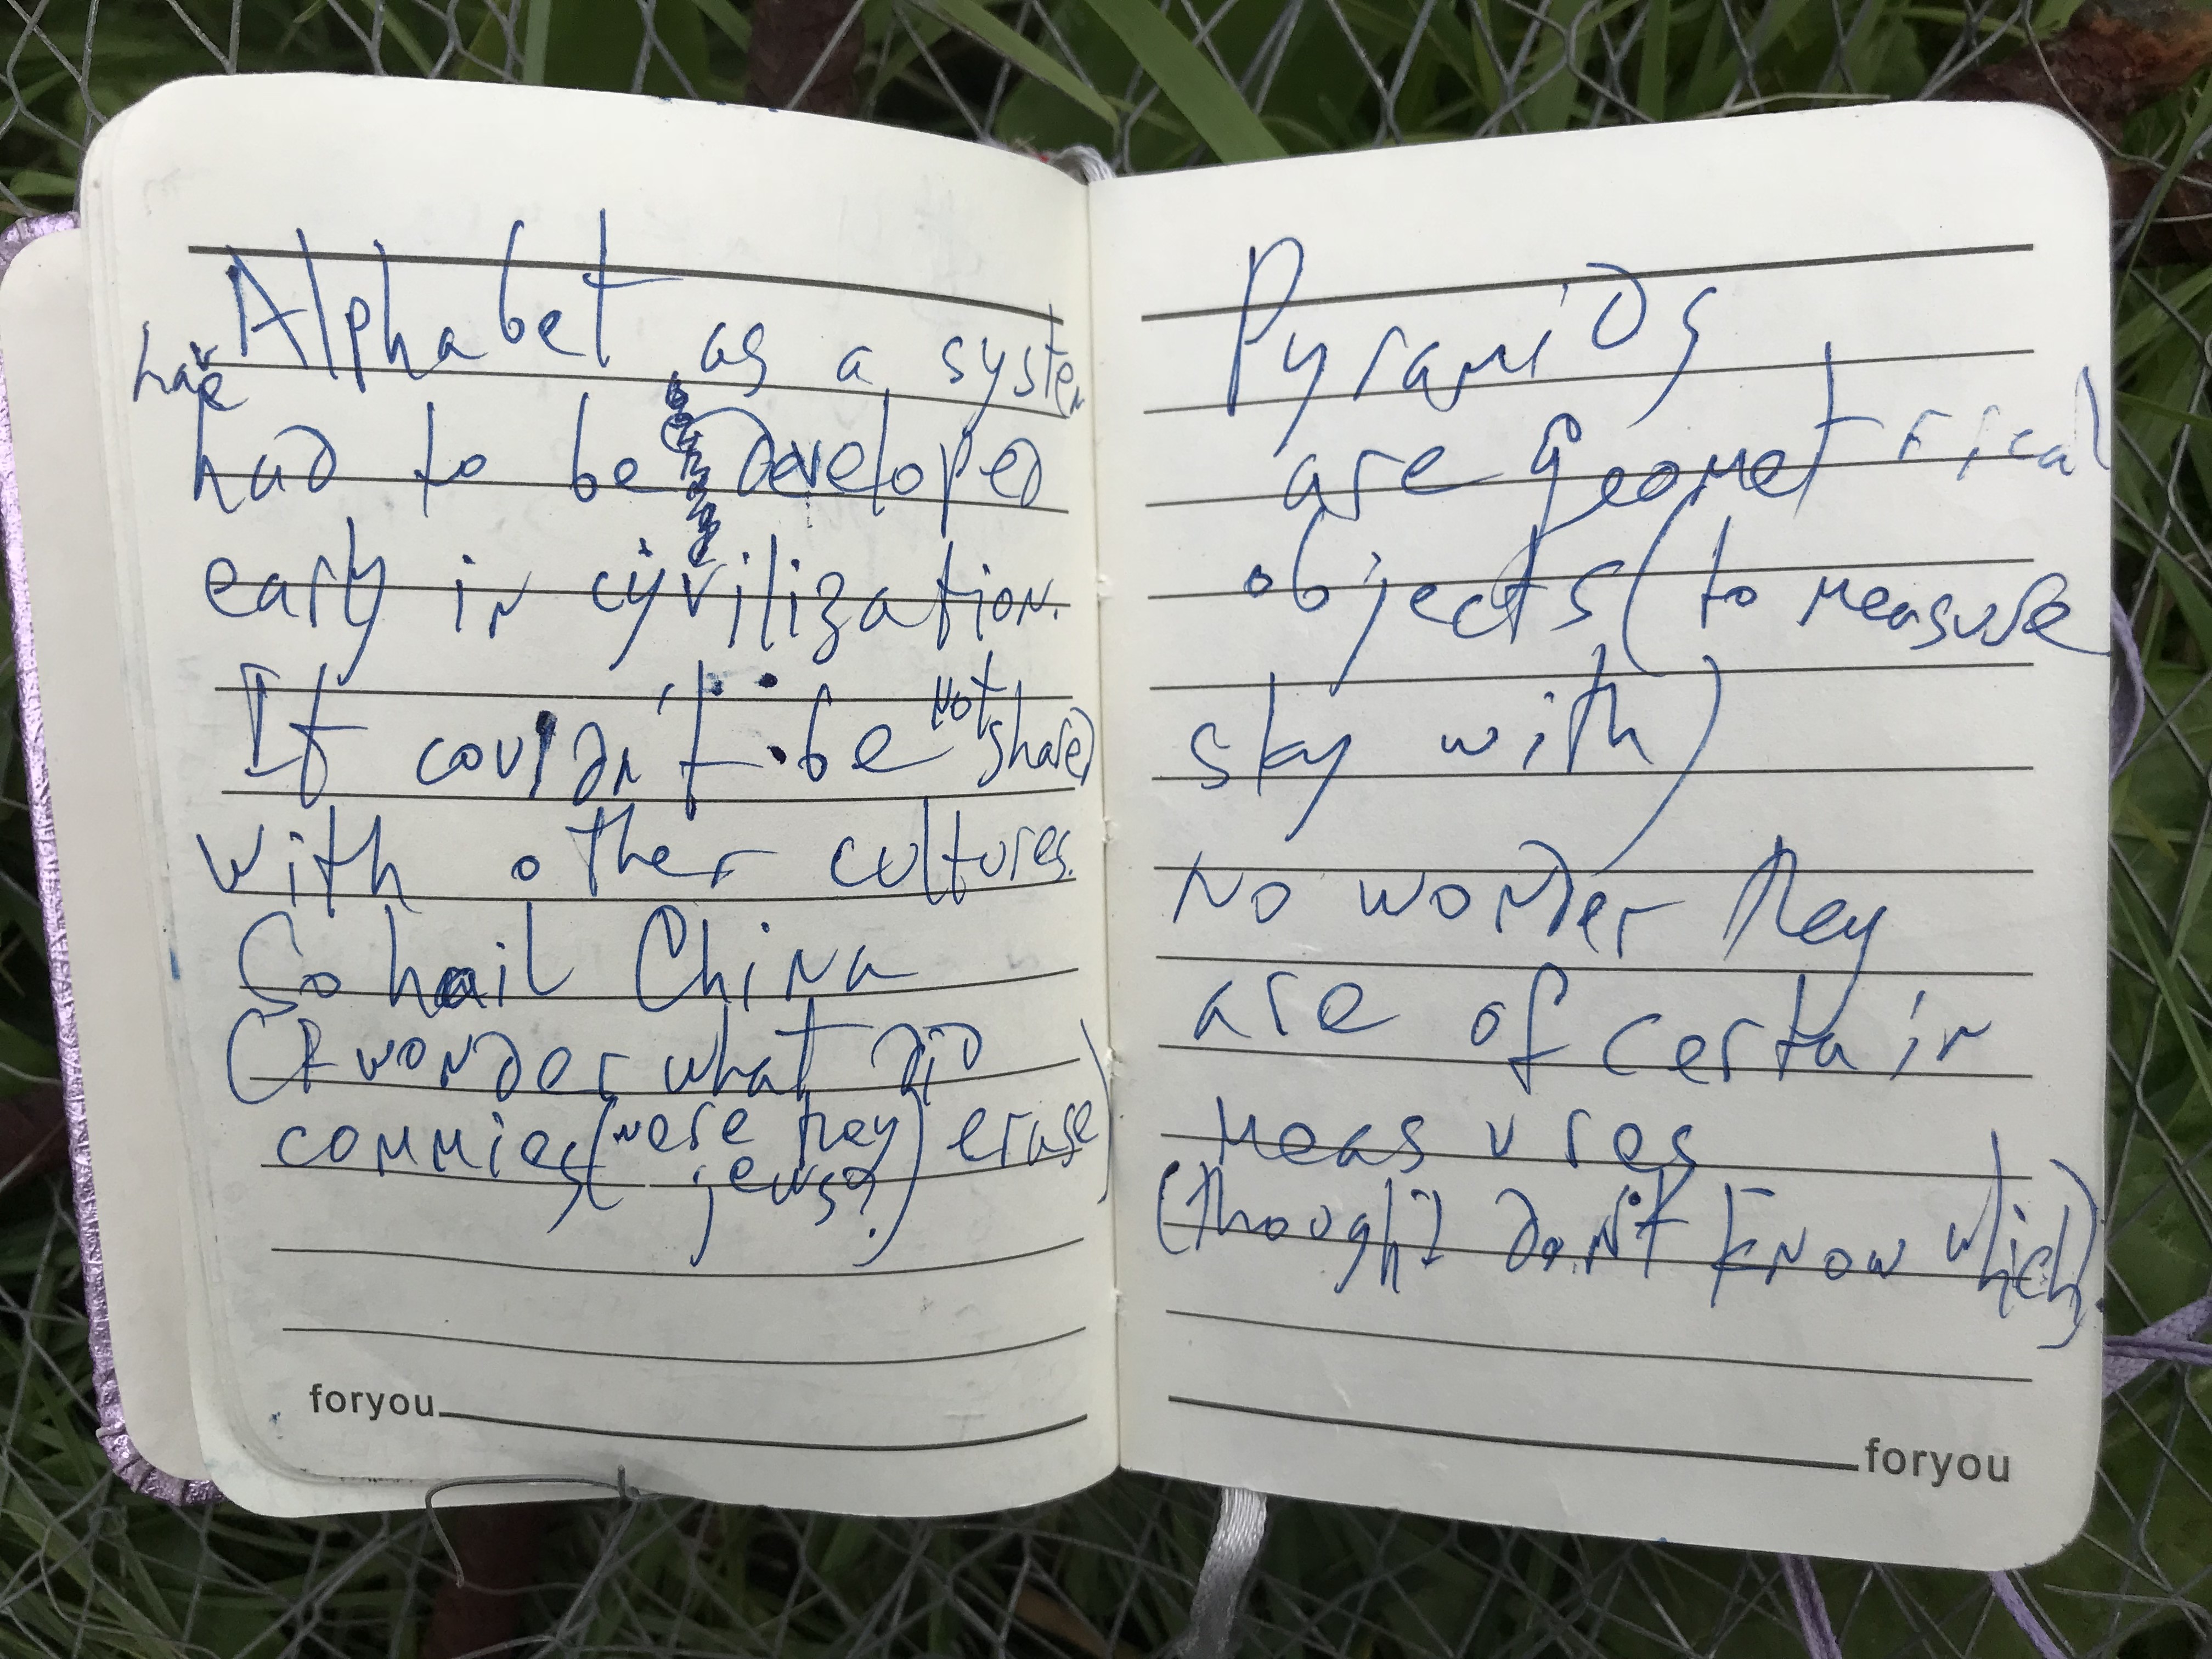 Alphabet as a system
have
had to be developed
early in cyvilization.
It couldn't be not shared
with other cultures.
So hail China
(I wonder what did
commies (were they erase)
jews?)
foryou
Pyramids
are geometrical
objects (to measure
sky with)
No wonder they
are of certain
measures
(though I don't know which)
foryou